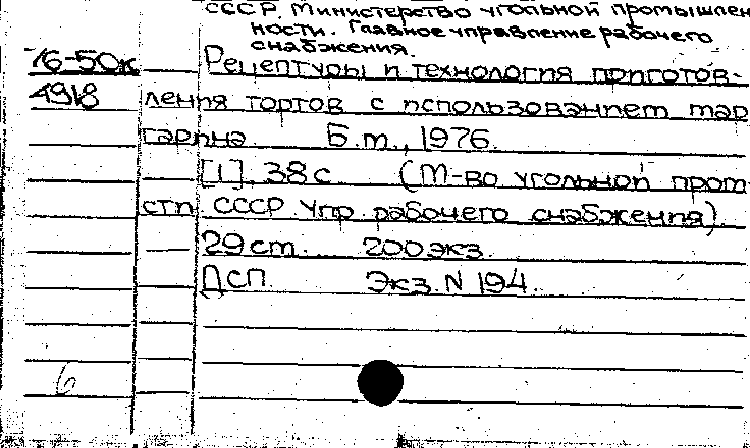 СССР. Министерство угольной промышлен
ности. Главное управление рабочего
снабжения.
76-50к Рецептуры и технология приготов-
4918 ления тортов с использованием мар
гарина Б.м., 1976.
[1], 38 с (М-во угольной пром
сти СССР Упр. рабочего снабжения).
29 ст. 200 экз.
ДСП Экз. N 194.
6